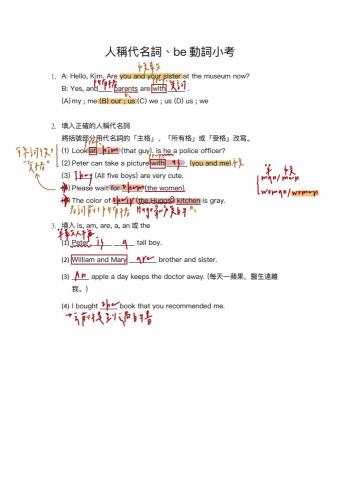 人稱代名詞、be 動詞小考
1. A: Hello, Kim, Are you and your sister at the museum now?
B: Yes, and parents are with .
(A) my ; me (B) our ; us (C) we ; us (D) us ; we
2. 填入正確的人稱代名詞
將括號部分用代名詞的「主格」、「所有格」或「受格」改寫。
(1) Look at him (that guy). Is he a police officer?
(2) Peter can take a picture with us (you and me)
(3) They (All five boys) are very cute.
Please wait for them (the women).
The color of (the Hugos) kitchen is gray.
單 複
man/men
woman/women
3. 填入 is, am, are, a, an 或 the
(1) Peter is a tall boy.
(2) William and Mary are brother and sister.
(3) An apple a day keeps the doctor away. (每天一蘋果，醫生遠離
我。)
(4) I bought the book that you recommended me.